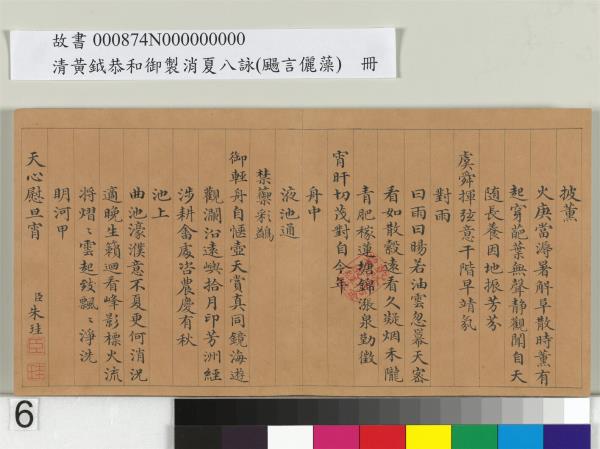 故書 000874N000000000
清黃鉞恭和御製消夏八詠(颺言儷藻) 冊
披薰
火庚當溽暑解阜散時薰有
起穿葩葉無聲靜觀聞自天
隨長養因地振芳芬
虞舜揮弦意千階早靖氛
對雨
曰雨曰暘若油雲忽羃天密
看如散縠遠看久凝烟禾隴
青肥稼蓮塘錦漲泉勤徵
宵旰切茂對自今年
舟中
液池通
禁籞彩鷁
御輕舟自愜壺天賞真同鏡海遊
觀瀾沿遠嶼拾月印芳洲經
涉耕畬處咨農慶有秋
池上
曲池濠濮意不夏更何消況
適晚生籟迴看峰影標火流
將熠〻雲起致飄〻淨洗
明河甲
天心慰旦宵
臣朱珪
6